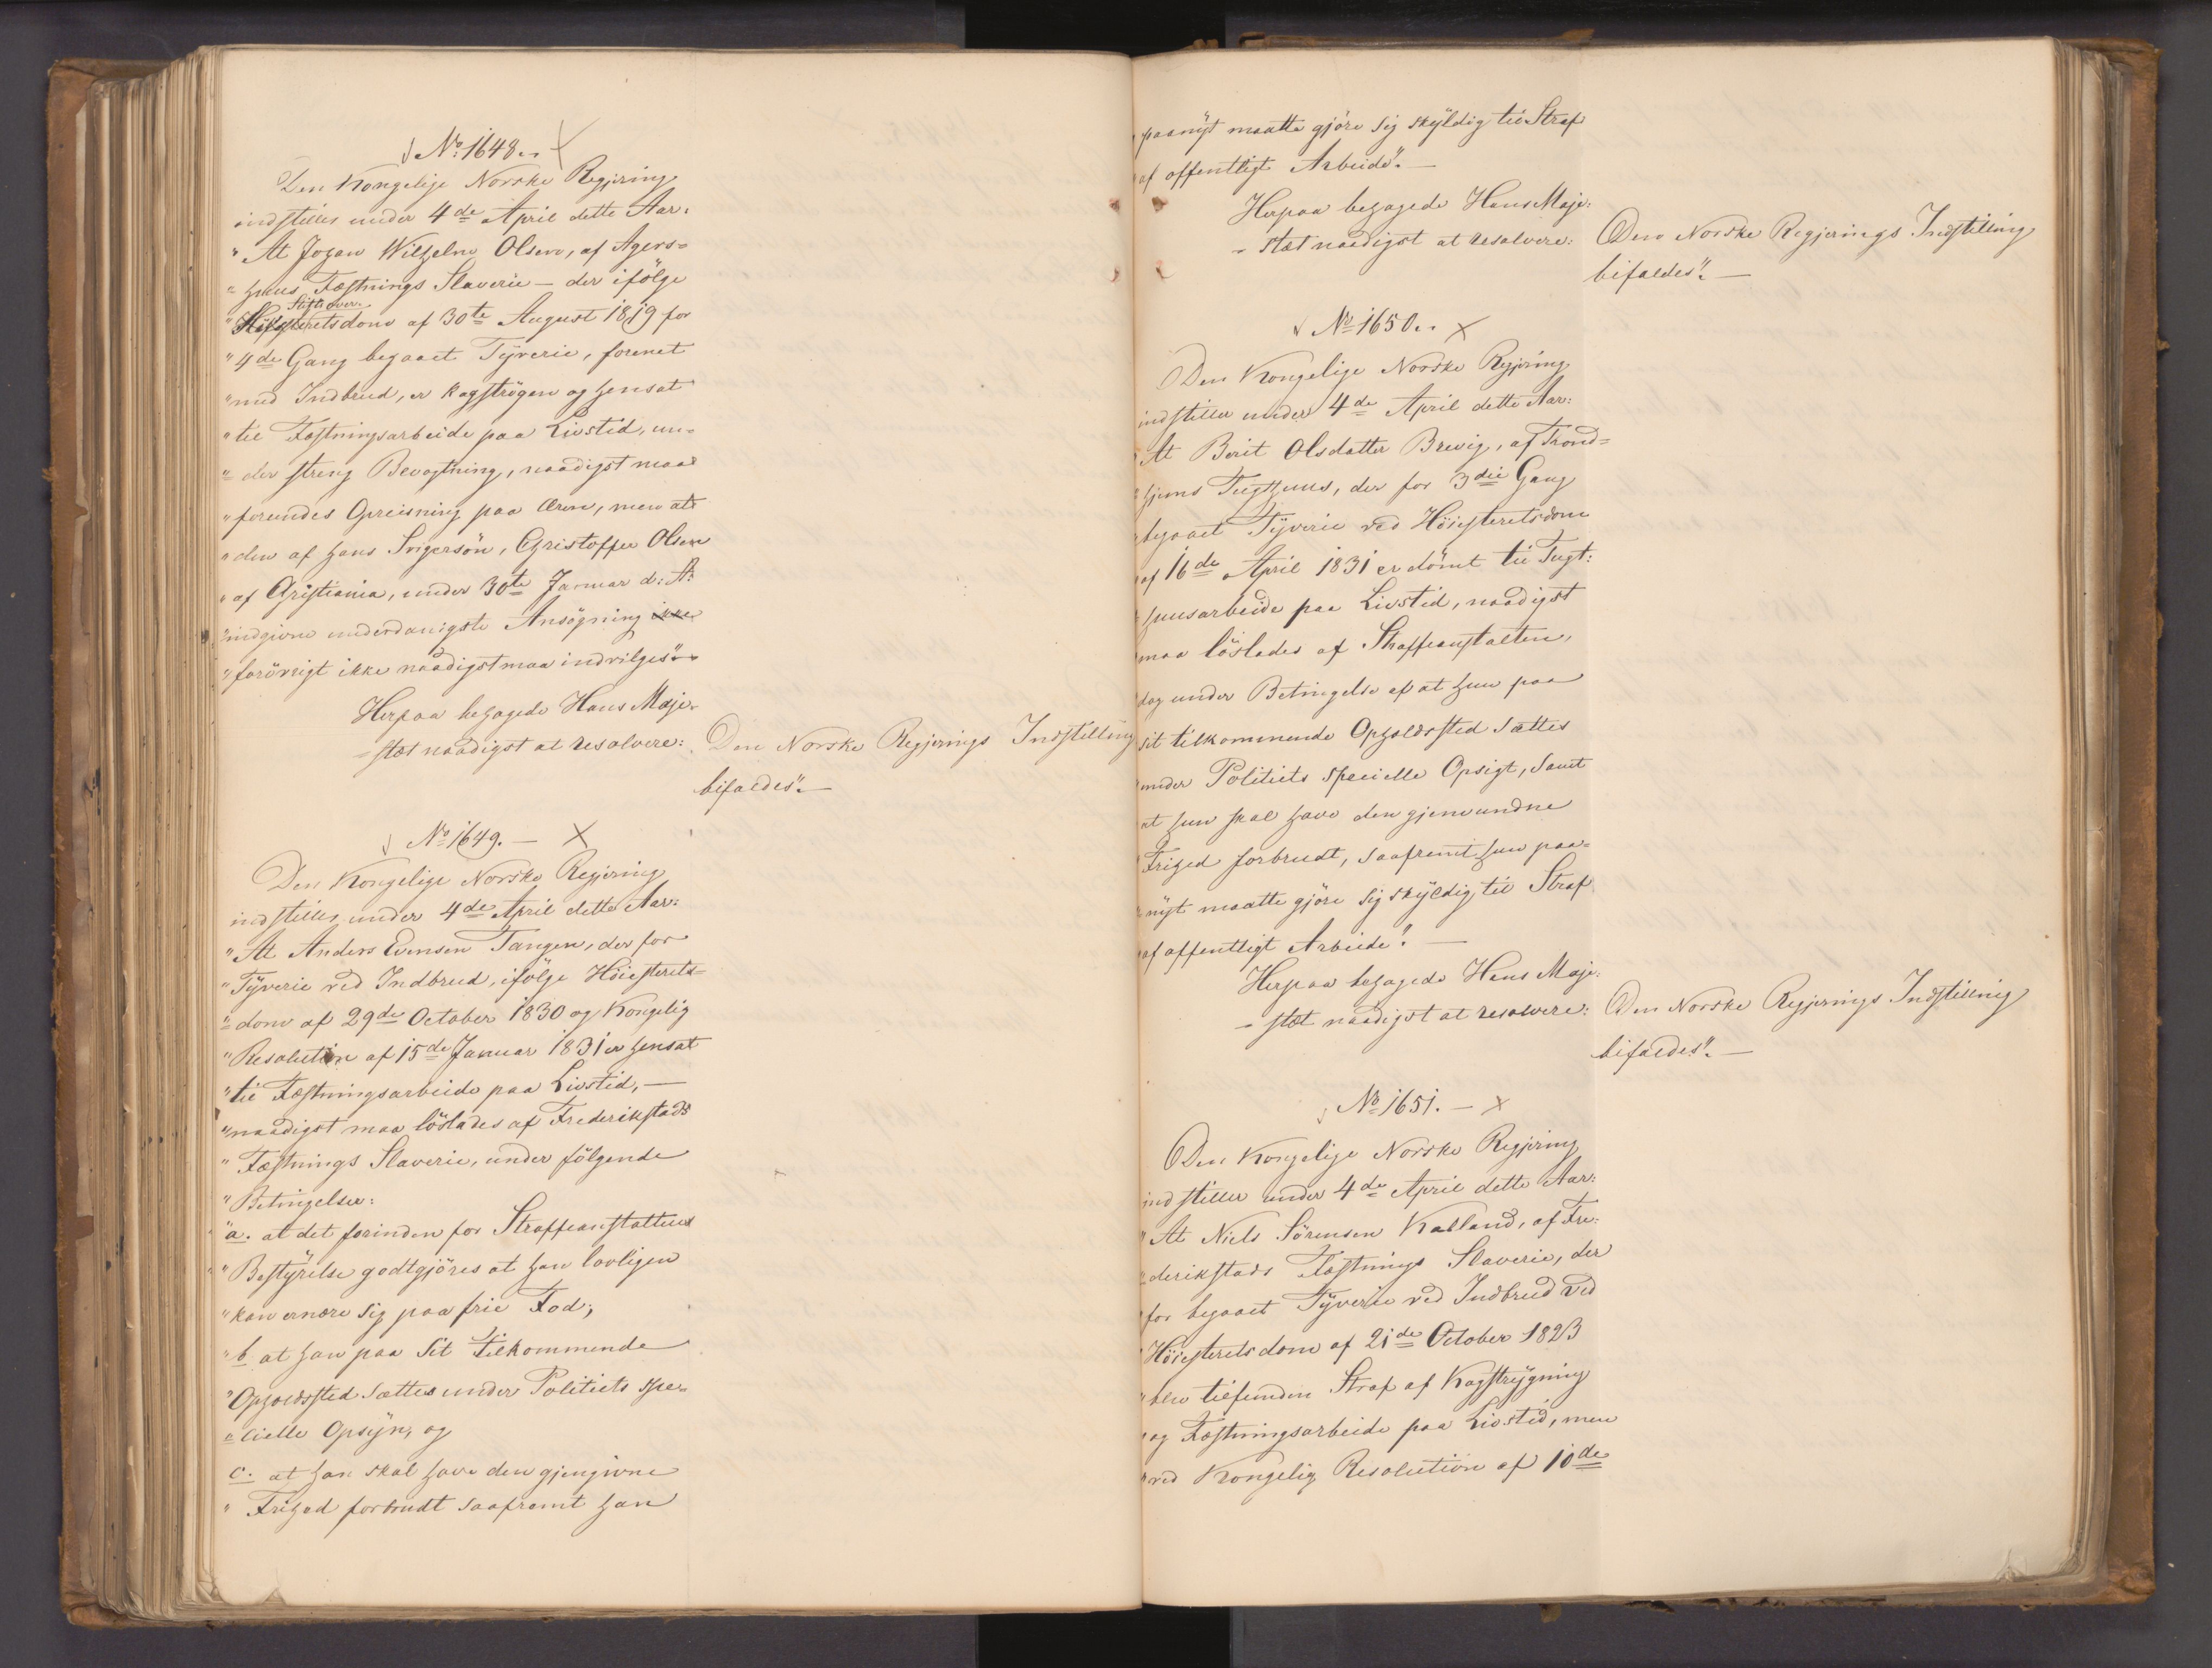 No: 1648.
Den Kongelige Norske Regjering
indstiller under 4de April dette Aar:
"At Johan Wilhelm Olsen, af Agers=
"huus Fæstnings Slaverie – der ifölge
Stiftsover-
"Höiesteretsdom af 30te August 1819 for
"4de Gang begaaet Tyverie, forenet
"med Indbrud, er kagströgen og hensat
"til Fæstningsarbeide paa Livstid, un=
"der streng Bevogtning, naadigst maa
"forundes Opreisning paa Æren, men at
"den af hans Svigersön, Christoffer Olsen
"af Christiania, under 30te Januar d: A:
"indgivne underdanigste Ansögning ikke
"forövrigt ikke naadigst maa indvilges".
Herpaa behagede Hans Maje-
stæt naadigst at resolvere:
Den Norske Regjerings Indstilling
bifaldes". –
No 1649. –
Den Kongelige Norske Regjering
indstiller under 4de April dette Aar:
"At Anders Evensen Tangen, der for
"Tyverie ved Indbrud, ifölge Höiesterets=
"dom af 29de October 1830 og Kongelig
"Resolution af 15de Januar 1831 er hensat
"til Fæstningsarbeide paa Livstid, –
"naadigst maa löslades af Frederikstads
"Fæstnings Slaverie, under fölgende
"Betingelser:
"a. at det forinden for Straffeanstaltens
"Bestyrelse godtgjöres at han lovligen
"kan ernære sig paa frie Fod;
"b. at han paa sit tilkommende
"Opholdssted sættes under Politiets spe=
"cielle Opsyn, og
c. at han skal have den gjengivne
"Frihed forbrudt saafremt han
paanyt maatte gjöre sig skyldig til Straf
af offentligt Arbeide". –
Herpaa behagede Hans Maje:
– stæt naadigst at resolvere:
Den Norske Regjerings Indstilling
bifaldes". –
No 1650.
Den Kongelige Norske Regjering
indstiller under 4de April dette Aar:
"At Berit Olsdatter Brevig, af Trond=
hjems Tugthuus, der for 3die Gang
begaaet Tyverie ved Höiesteretsdom
af 16de April 1831 er dömt til Tugt:
huusarbeide paa Livstid, naadigst
maa löslades af Straffeanstalten,
dog under Betingelse af at hun paa
sit tilkommende Opholdssted sættes
under Politiets specielle Opsigt, samt
at hun skal have den gjenvundne
Frihed forbrudt, saafremt hun paa=
nyt maatte gjöre sig skyldig til Straf
af offentligt Arbeide". –
Herpaa behagede Hans Maje:
– stæt naadigst at resolvere:
Den Norske Regjerings Indstilling
bifaldes". –
No 1651. –
Den Kongelige Norske Regjering
indstiller under 4de April dette Aar:
"At Niels Sörensen Kalland, af Fre:
"derikstads Fæstnings Slaverie, der
for begaaet Tyverie ved Indbrud ved
"Höiesteretsdom af 21de October 1823
"blev tilfunden Straf af Kagstrygning
"og Fæstningsarbeide paa Livstid, men
"ved Kongelig Resolution af 10de